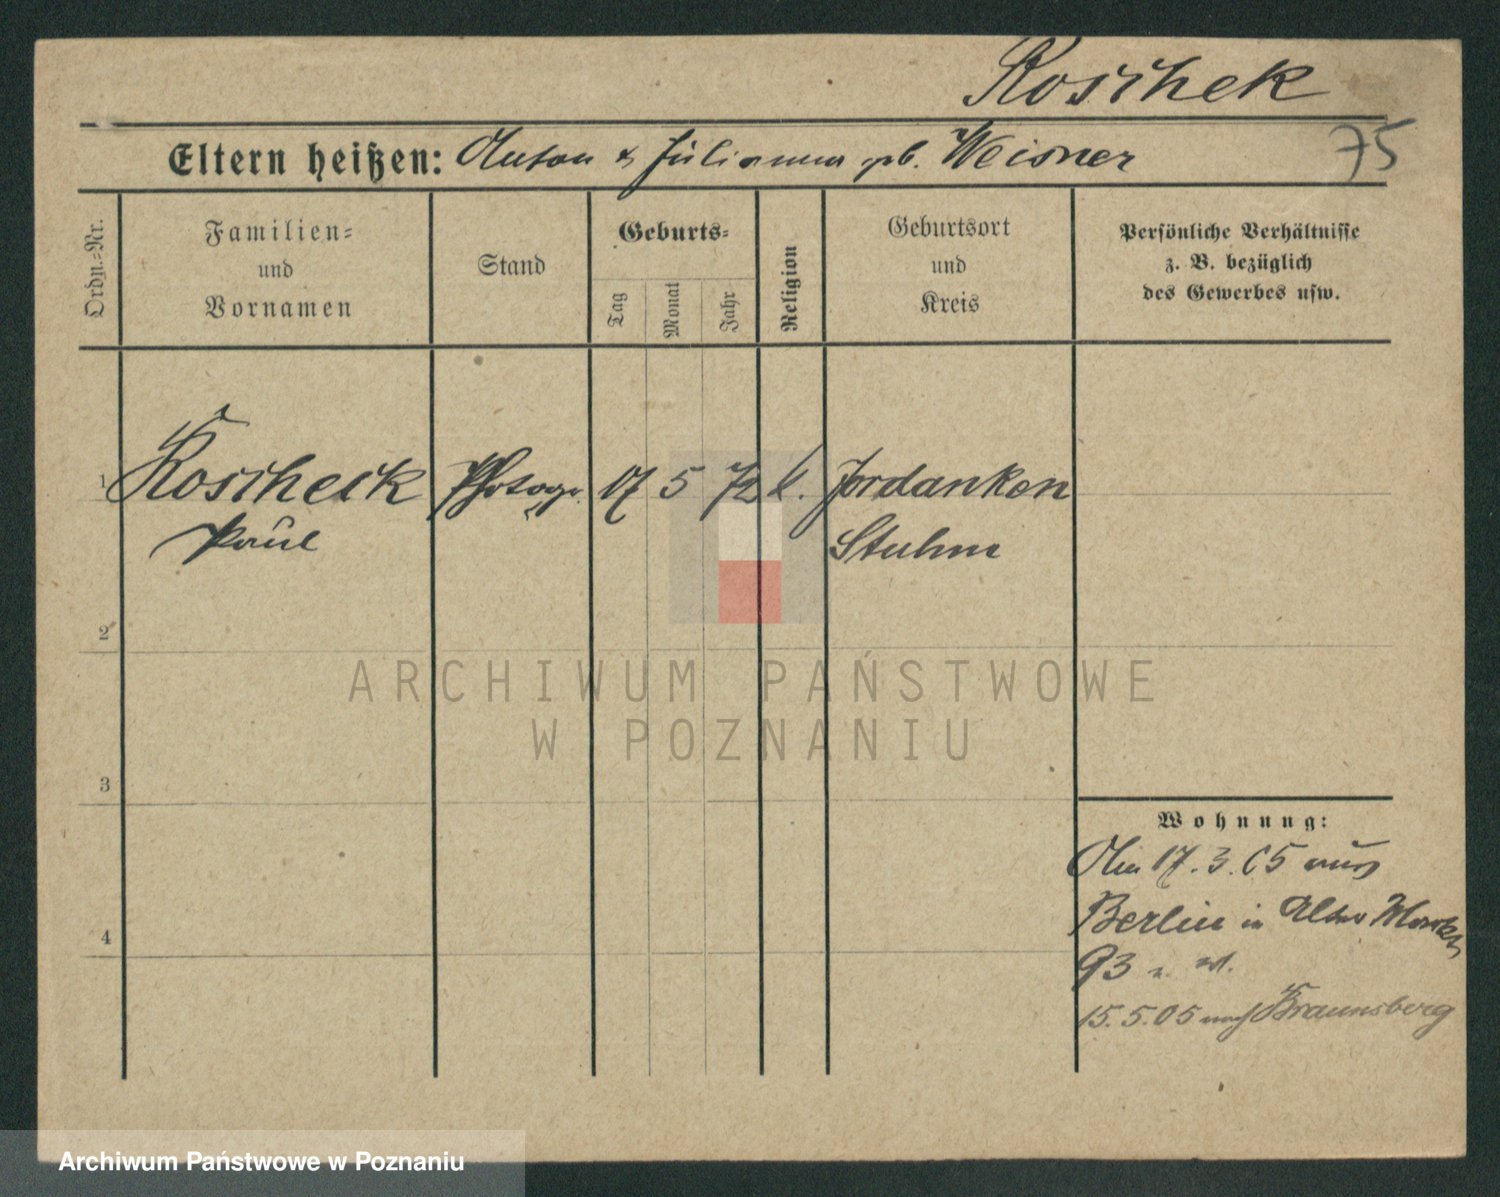 Koschek
75
Eltern heißen: Anton & Julianna gb. Weisner
Ordn.-Nr.
Familien-
und
Vornamen
Stand
Geburts-
Tag
Monat
Jahr
Religion
Geburtsort
und
Kreis
Persönliche Verhältnisse
z. B. bezüglich
des Gewerbes usw.
1 Koscheck Photogr. 17 5 72 k. Jordanken
Paul Stuhm
2
3
4
ARCHIWUM PAŃSTWOWE
W POZNANIU
Wohnung:
17. 3. 05 aus
Berlin in Alter Markt
93
15. 5. 05 nach Braunsberg
Archiwum Państwowe w Poznaniu